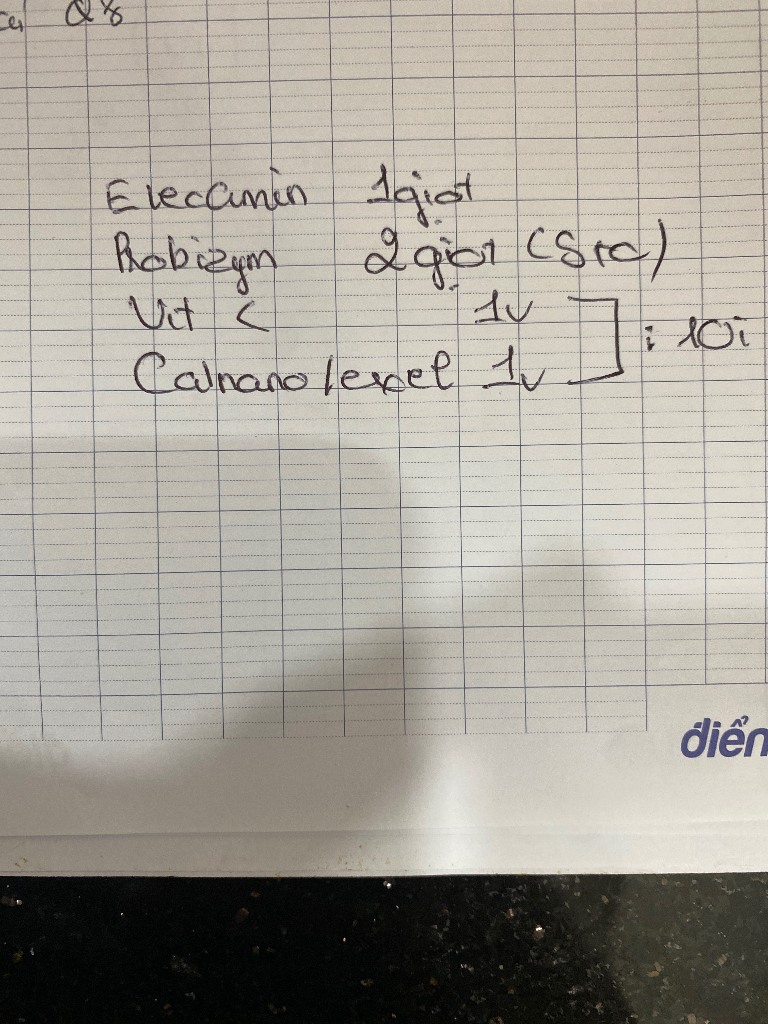 Q8
Eleccimin 1giọt
Probizym 2 giọt (Src)
Vit C 1v
Calnano / excel 1v
] : 10i
điển